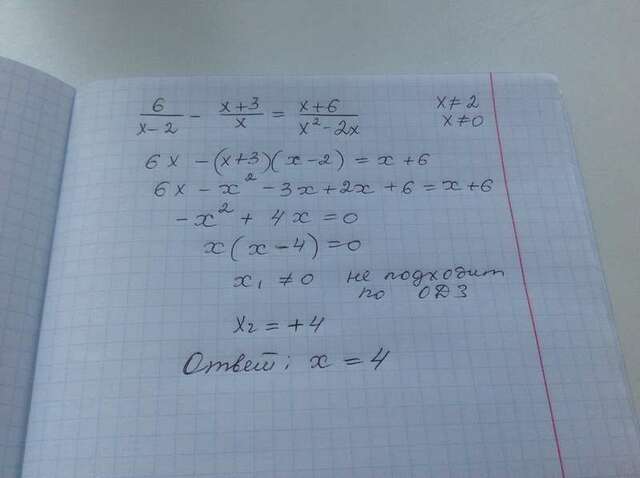 6/(x-2) - (x+3)/x = (x+6)/(x²-2x) x≠2
x≠0
6x - (x+3)(x-2) = x+6
6x - x² - 3x + 2x + 6 = x+6
-x² + 4x = 0
x(x-4) = 0
x₁ ≠ 0 не подходит
по ОДЗ
x₂ = +4
Ответ: x = 4